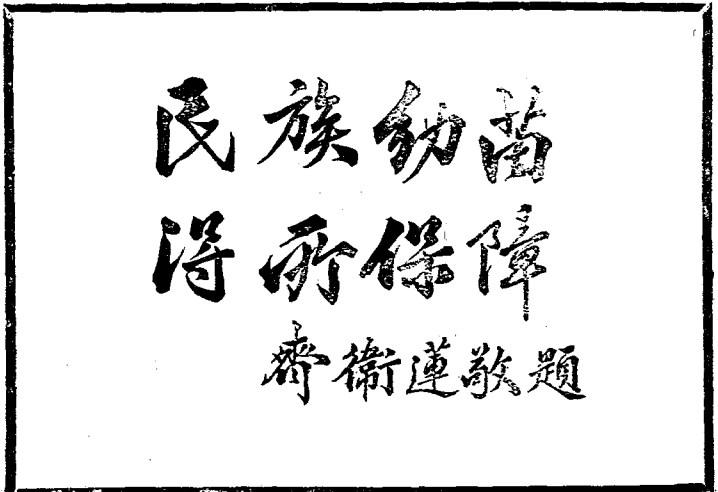 民族幼苗
得所保障
齊衛蓮敬題